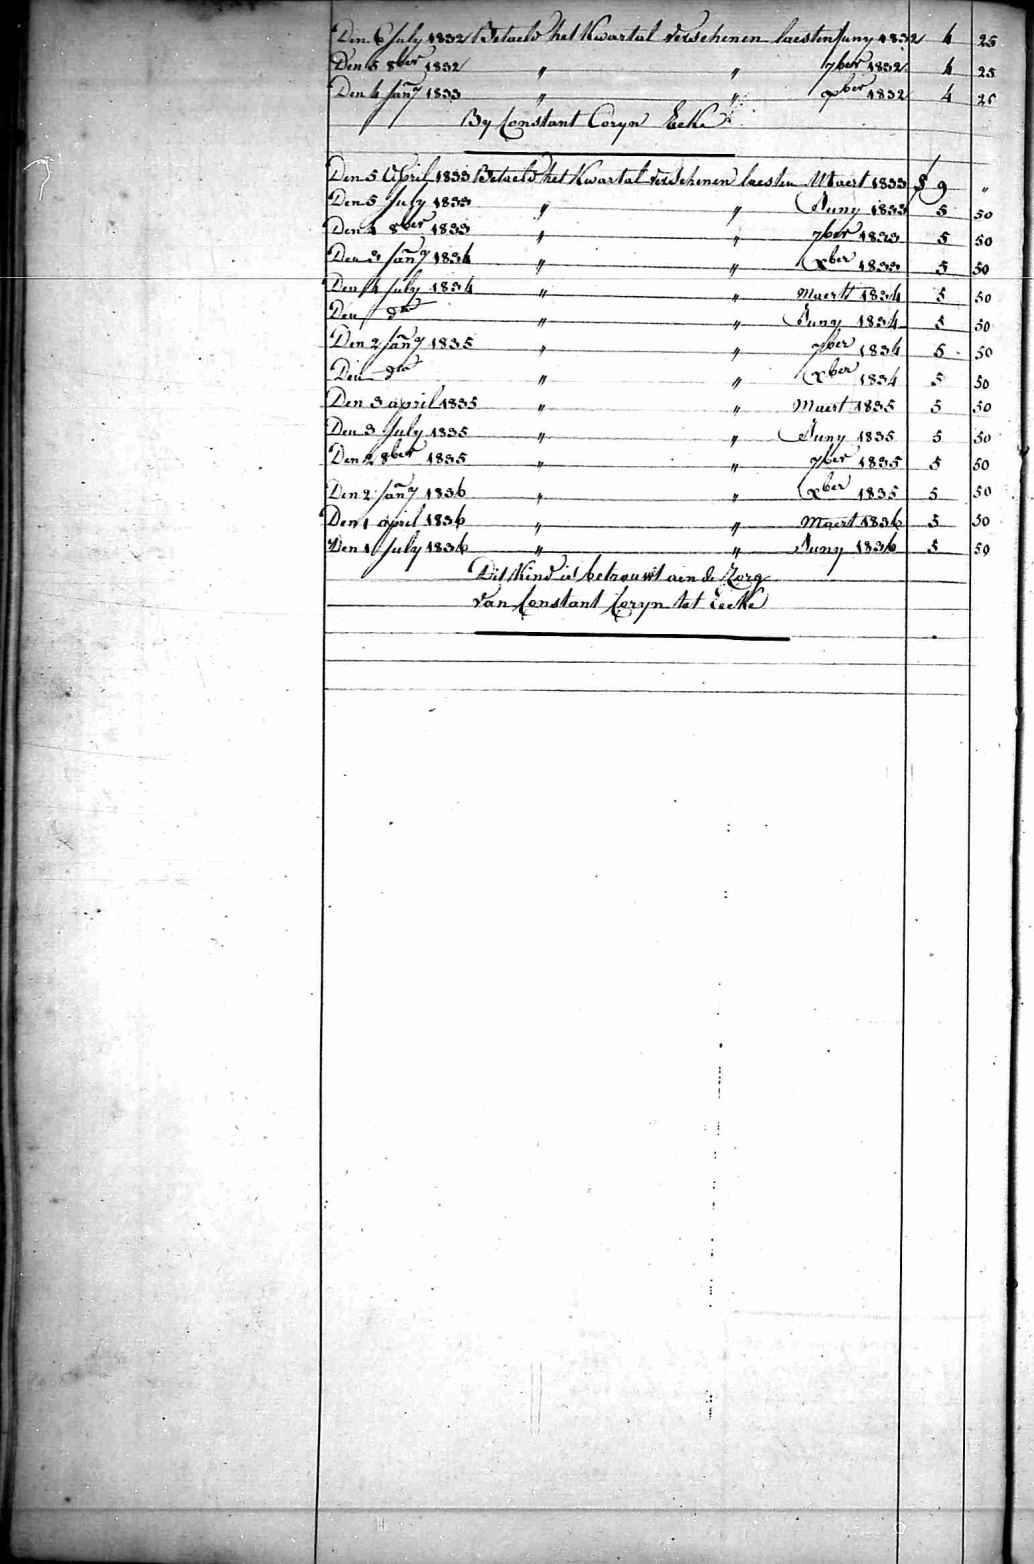 Den 6 July 1832 Betaeld het Kwartal verschenen laesten Juny 1832 4 25
Den 5 8ber 1832 " " 7ber 1832 4 25
Den 4 Jany 1833 " " xber 1832 4 25
By Constant Coryn Eeke
Den 5 April 1833 Betaeld het Kwartal verschenen laesten Maert 1833 9 "
Den 5 July 1833 " " Juny 1833 5 50
Den 2 8ber 1833 " " 7ber 1833 5 50
Den 3 Jany 1834 " " xber 1833 5 50
Den 4 July 1834 " " Maert 1834 5 50
Den do " " Juny 1834 5 50
Den 2 Jany 1835 " " 7ber 1834 5 50
Den dto " " xber 1834 5 50
Den 3 april 1835 " " Maert 1835 5 50
Den 3 July 1835 " " Juny 1835 5 50
Den 2 8ber 1835 " " 7ber 1835 5 50
Den 2 Jany 1836 " " xber 1835 5 50
Den 1 april 1836 " " Maert 1836 5 50
Den 1 July 1836 " " Juny 1836 5 50
Dit Kind is betrouwt aen de Zorg
van Constant Coryn tot Eecke